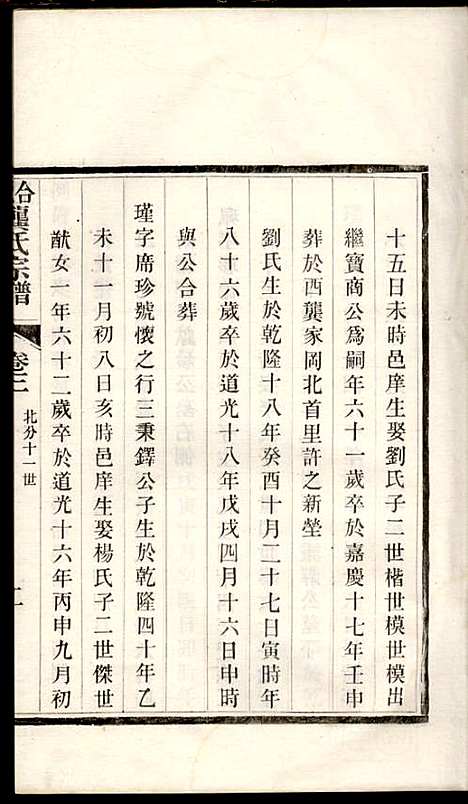 十五日未時邑庠生娶劉氏子二世楷世模世模出
繼寶商公爲嗣年六十一歲卒於嘉慶十七年壬申
葬於西龔家岡北首里許之新塋
劉氏生於乾隆十八年癸酉十月二十七日寅時年
八十六歲卒於道光十八年戊戌四月十六日申時
與公合葬
瑾字席珍號懷之行三秉鐸公子生於乾隆四十年乙
未十一月初八日亥時邑庠生娶楊氏子二世傑世
猷女一年六十二歲卒於道光十六年丙申九月初
龔氏宗譜
卷三
北分十一世